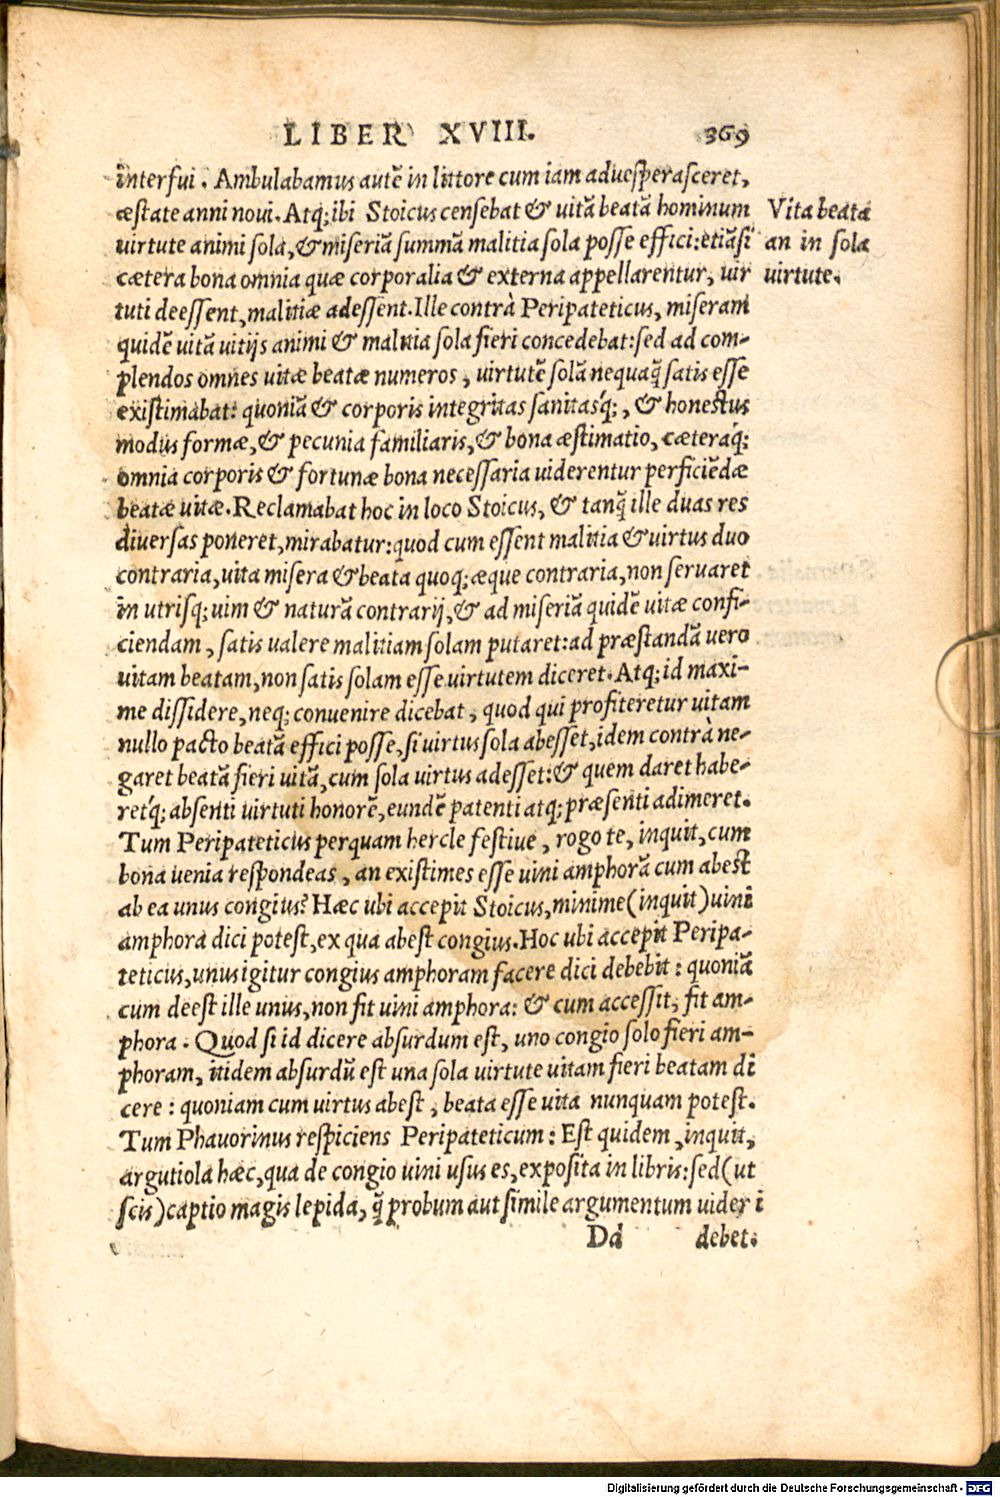 LIBER XVIII. 369
interfui. Ambulabamus autē in littore cum iam aduesperasceret,
æstate anni noui. Atq; ibi Stoicus censebat & uitā beatā hominum
uirtute animi sola, & miseriā summā malitia sola posse effici: etiāsi
cætera bona omnia quæ corporalia & externa appellarentur, uir
tuti deessent, malitiæ adessent. Ille contrà Peripateticus, miseram
quidē uitā uitijs animi & malitia sola fieri concedebat: sed ad com-
plendos omnes uitæ beatæ numeros, uirtutē solā nequaq̃ satis esse
existimabat: quoniā & corporis integritas sanitasq́;, & honestus
modus formæ, & pecunia familiaris, & bona æstimatio, cæteraq́;
omnia corporis & fortunæ bona necessaria uiderentur perficiēdæ
beatæ uitæ. Reclamabat hoc in loco Stoicus, & tanq̃ ille duas res
diuersas poneret, mirabatur: quod cum essent malitia & uirtus duo
contraria, uita misera & beata quoq; æque contraria, non seruaret
in utrisq; uim & naturā contrarij, & ad miseriā quidē uitæ confi-
ciendam, satis ualere malitiam solam putaret: ad præstandā uero
uitam beatam, non satis solam esse uirtutem diceret. Atq; id maxi-
me dissidere, neq; conuenire dicebat, quod qui profiteretur uitam
nullo pacto beatā effici posse, si uirtus sola abesset, idem contrà ne-
garet beatā fieri uitā, cum sola uirtus adesset: & quem daret habe-
retq́; absenti uirtuti honorē, eundē patenti atq; præsenti adimeret.
Tum Peripateticus perquam hercle festiue, rogo te, inquit, cum
bona uenia respondeas, an existimes esse uini amphorā cum abest
ab ea unus congius? Hæc ubi accepit Stoicus, minime (inquit) uini
amphora dici potest, ex qua abest congius. Hoc ubi accepit Peripa-
teticus, unus igitur congius amphoram facere dici debebit: quoniā
cum deest ille unus, non fit uini amphora: & cum accessit, fit am-
phora. Quod si id dicere absurdum est, uno congio solo fieri am-
phoram, itidem absurdū est una sola uirtute uitam fieri beatam di
cere: quoniam cum uirtus abest, beata esse uita nunquam potest.
Tum Phauorinus respiciens Peripateticum: Est quidem, inquit,
argutiola hæc, qua de congio uini usus es, exposita in libris: sed (ut
scis) captio magis lepida, q̃ probum aut simile argumentum uideri
Dd debet.
Vita beata
an in sola
uirtute.
Digitalisierung gefördert durch die Deutsche Forschungsgemeinschaft - DFG